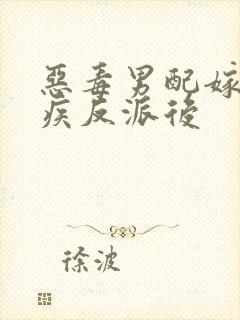 惡毒男配嫁
疾反派後
徐波